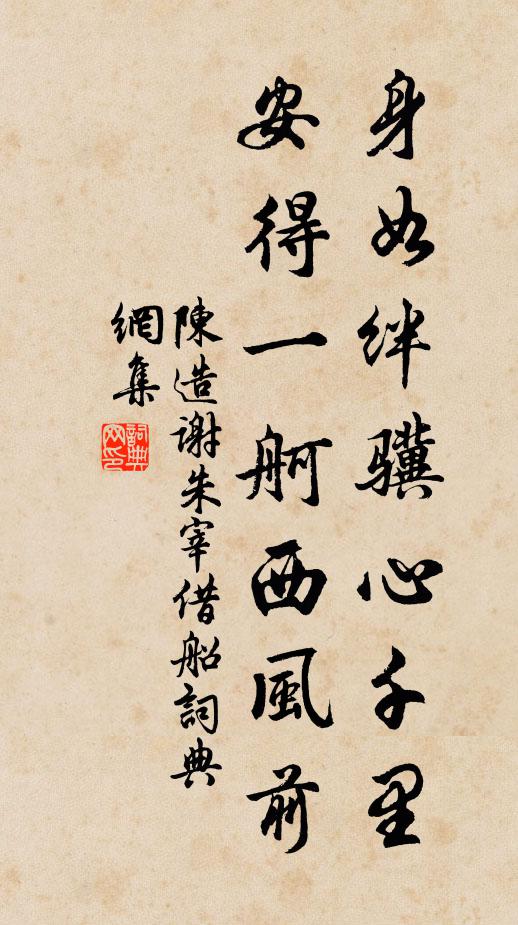 身如絆驥心千里
安得一舸西風前
陳造謝朱宰借船詞典
網集
詞典網印